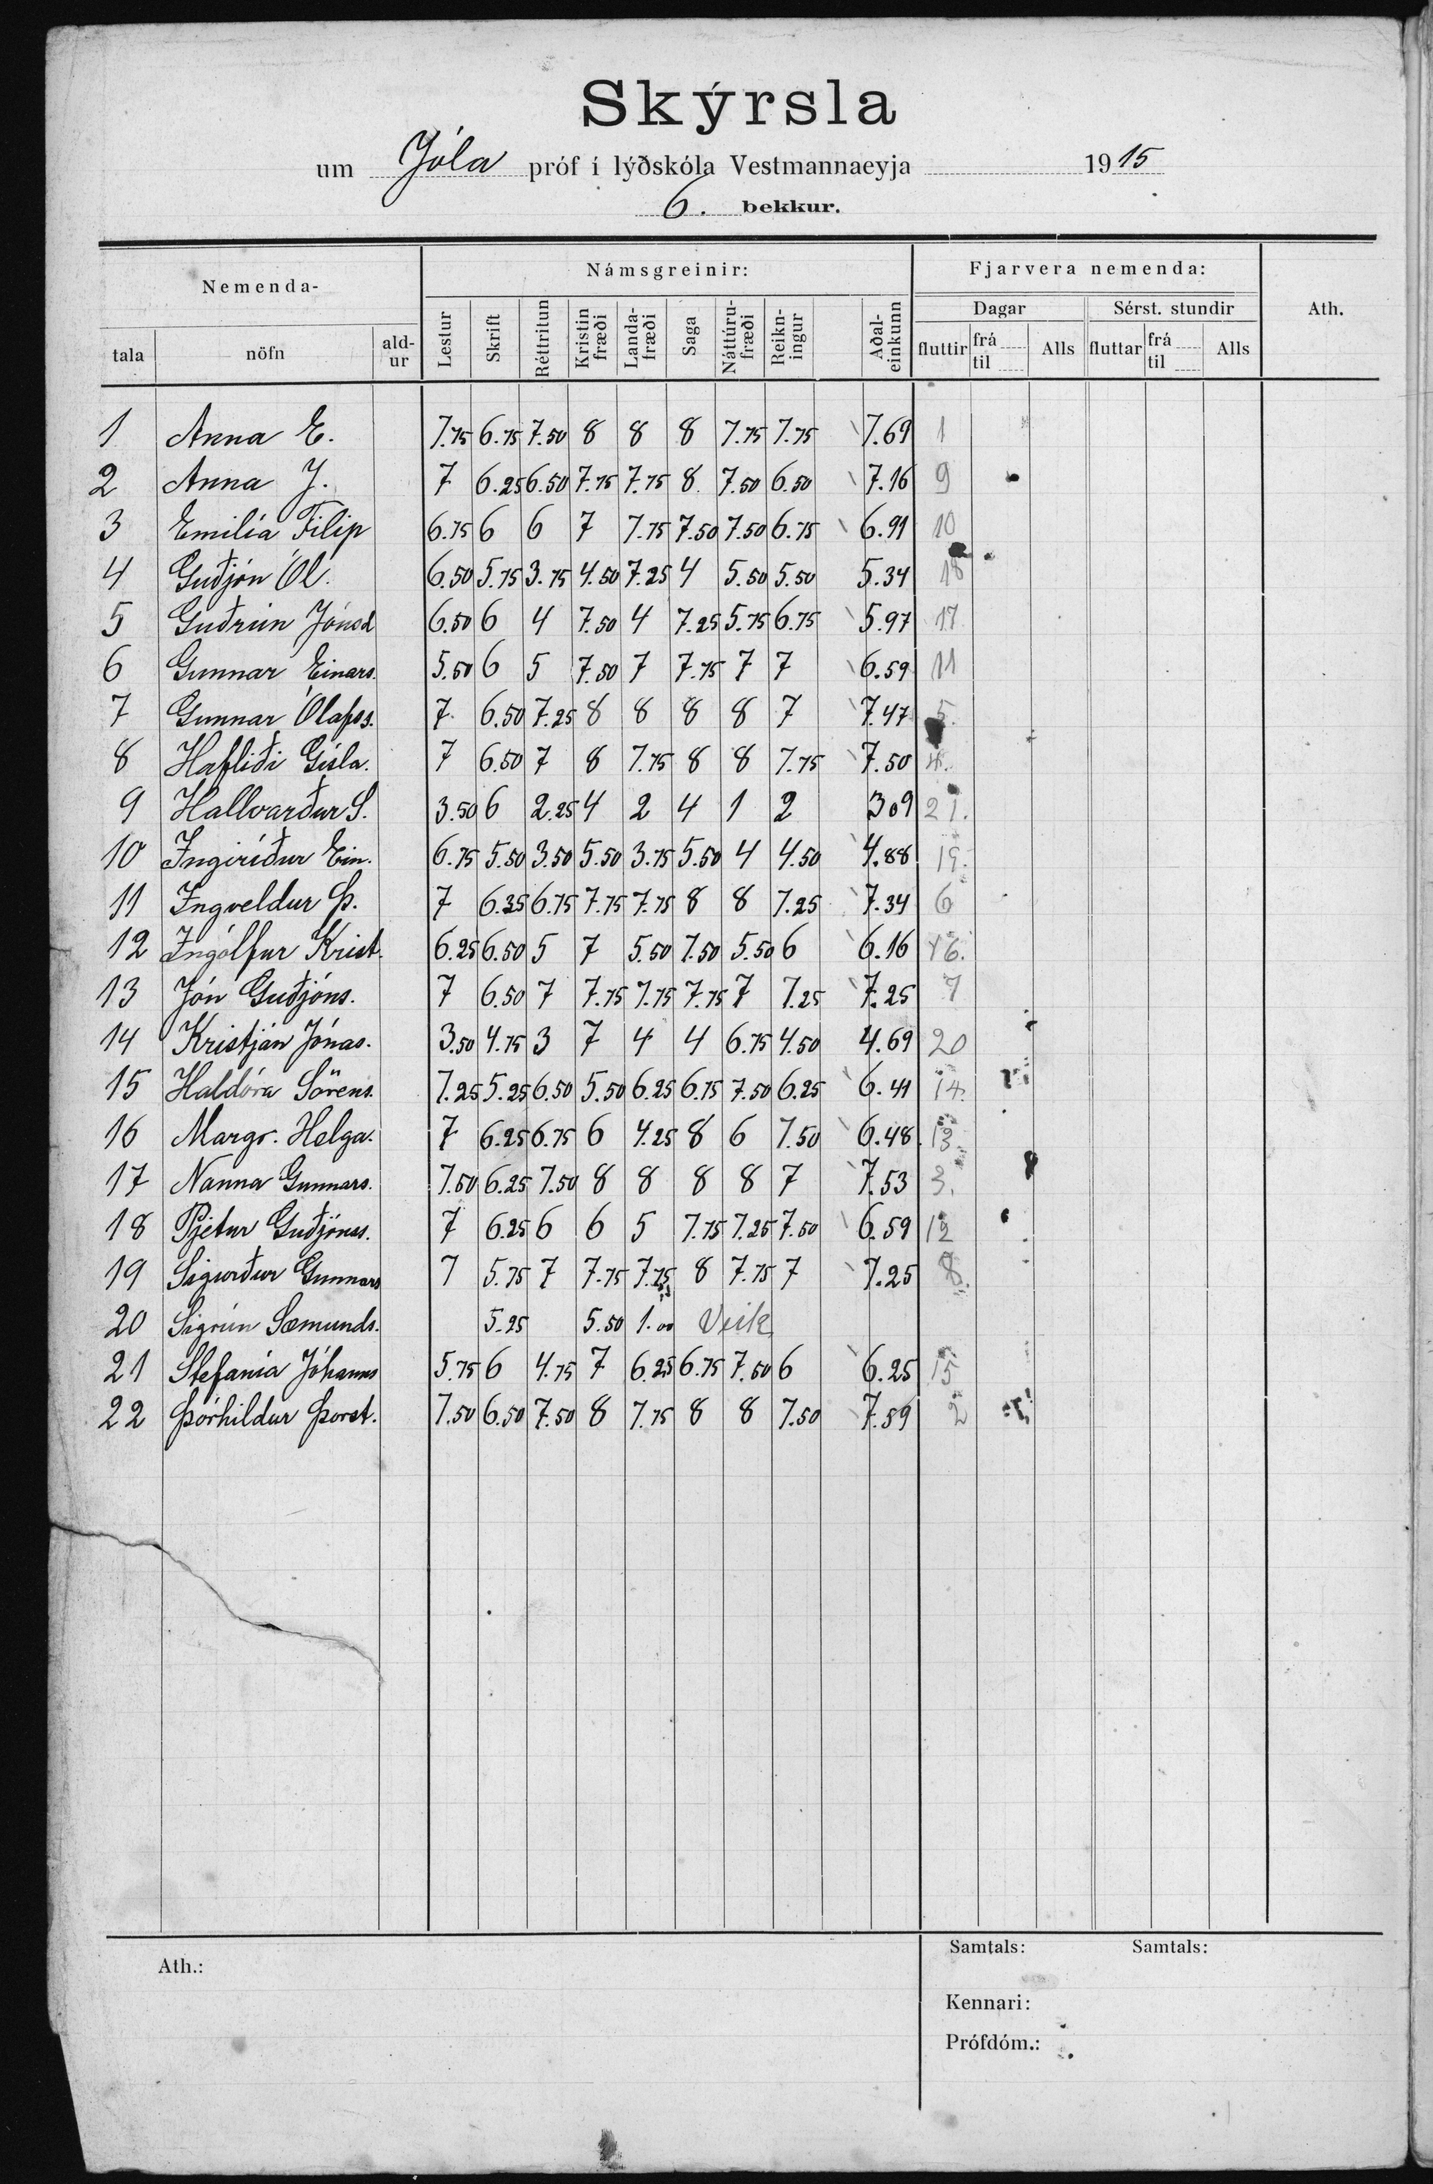 Skýrsla
um Jóla próf í lýðskóla Vestmannaeyja 1915
6. bekkur.
Nemenda- Námsgreinir: Fjarvera nemenda: Ath.
Dagar Sérst. stundir
tala nöfn ald-ur Lestur Skrift Réttritun Kristin fræði Landa-fræði Saga Náttúru-fræði Reikn-ingur Aðal-einkunn fluttir frá til Alls fluttar frá til Alls
1 Anna E. 7.75 6.75 7.50 8 8 8 7.75 7.75 7.69 1
2 Anna J. 7 6.25 6.50 7.75 7.75 8 7.50 6.50 7.16 9
3 Emilía Filip 6.75 6 6 7 7.75 7.50 7.50 6.75 6.91 10
4 Guðjón Ól. 6.50 5.75 3.75 4.50 7.25 4 5.50 5.50 5.34 18
5 Guðrún Jónsd 6.50 6 4 7.50 4 7.25 5.75 6.75 5.97 17
6 Gunnar Einars. 5.50 6 5 7.50 7 7.75 7 7 6.59 11
7 Gunnar Ólafss. 7 6.50 7.25 8 8 8 8 7 7.47 5.
8 Hafliði Gísla. 7 6.50 7 8 7.75 8 8 7.75 7.50 4.
9 Hallvarður S. 3.50 6 2.25 4 2 4 1 2 309 21.
10 Ingiríður Ein. 6.75 5.50 3.50 5.50 3.75 5.50 4 4.50 4.88 19.
11 Ingveldur Þ. 7 6.25 6.75 7.75 7.75 8 8 7.25 7.34 6
12 Ingólfur Krist. 6.25 6.50 5 7 5.50 7.50 5.50 6 6.16 16.
13 Jón Guðjóns. 7 6.50 7 7.75 7.75 7.75 7 7.25 7.25 7
14 Kristján Jónas. 3.50 4.75 3 7 4 4 6.75 4.50 4.69 20
15 Haldóra Sörens. 7.25 5.25 6.50 5.50 6.25 6.75 7.50 6.25 6.41 14.
16 Margr. Helga. 7 6.25 6.75 6 4.25 8 6 7.50 6.48 13.
17 Nanna Gunnars. 7.50 6.25 7.50 8 8 8 8 7 7.53 3.
18 Pjetur Guðjónss. 7 6.25 6 6 5 7.75 7.25 7.50 6.59 12
19 Sigurður Gunnars 7 5.75 7 7.75 7.75 8 7.75 7 7.25 8.
20 Sigrún Sæmunds. 5.25 5.50 1.00 Veik
21 Stefanía Jóhanns 5.75 6 4.75 7 6.25 6.75 7.50 6 6.25 15
22 Þórhildur Þorst. 7.50 6.50 7.50 8 7.75 8 8 7.50 7.59 2
Samtals: Samtals:
Ath.:
Kennari:
Prófdóm.: